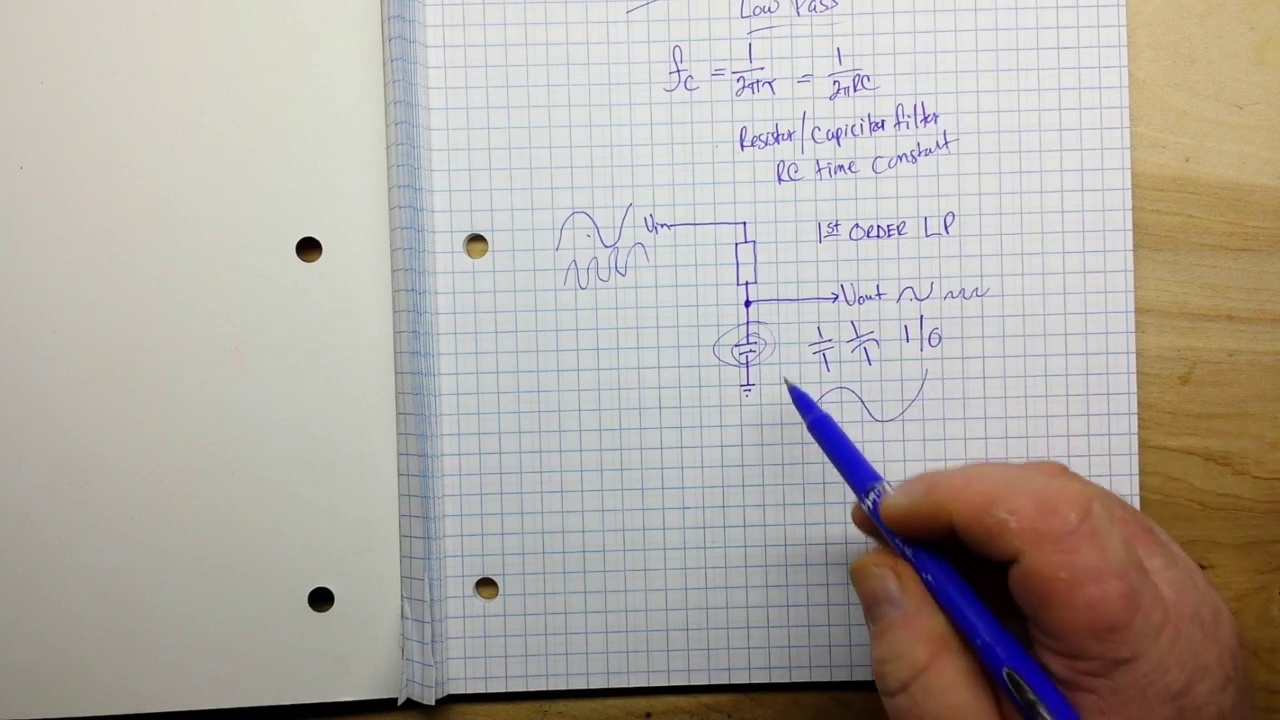 Low Pass
fc = 1/2πτ = 1/2πRC
Resistor/Capicitor filter
RC time constant
Vin
1st ORDER LP
Vout
1/0